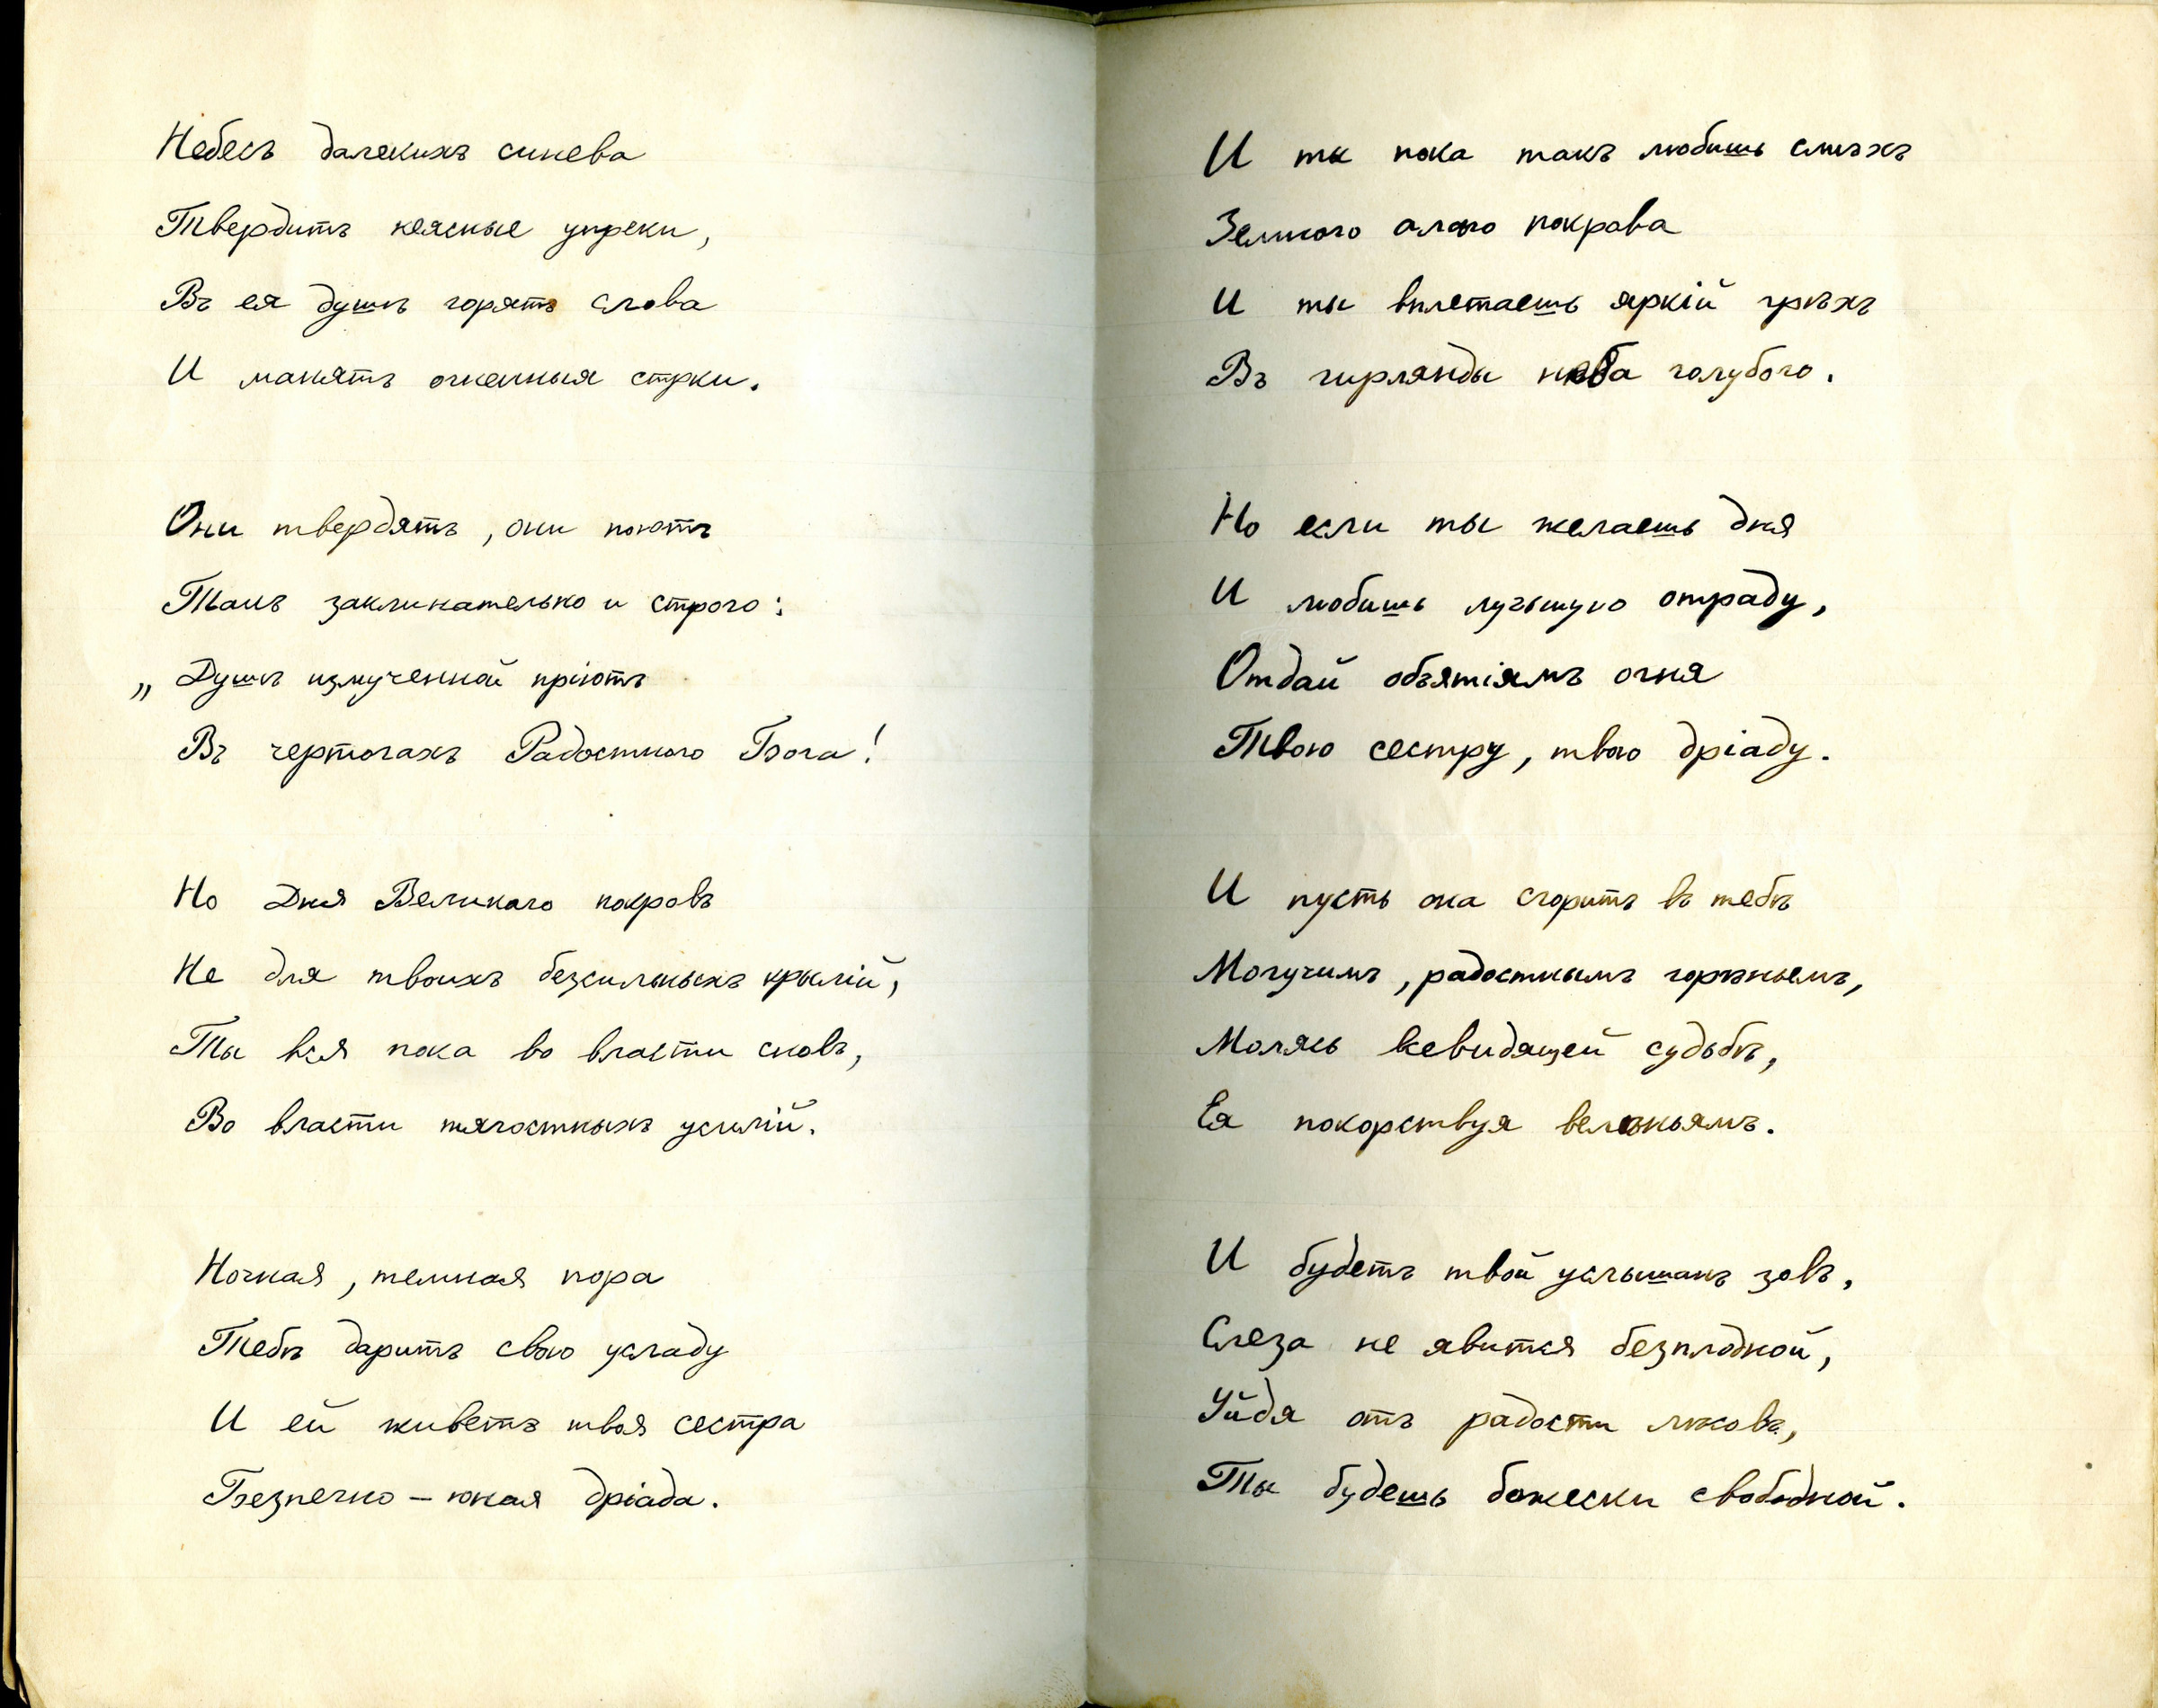 Небесъ далекихъ синева
Твердитъ неясные упреки,
Въ ея душѣ горятъ слова
И манятъ огненныя строки.
Они твердятъ, они поютъ
Такъ заклинательно и строго:
„Душѣ измученной пріютъ
Въ чертогахъ Радостного Бога!
Но Дня Великаго покровъ
Не для твоихъ безсильныхъ крылій,
Ты вся пока во власти сновъ,
Во власти тягостныхъ усилій.
Ночная, темная пора
Тебѣ даритъ свою усладу
И ей живетъ твоя сестра
Безпечно — юная дріада.
И ты пока такъ любишь смѣхъ
Земного алого покрова
И ты вплетаешь яркій грѣхъ
Въ гирлянды неба голубого.
Но если ты желаешь дня
И любишь лучьшую отраду,
Отдай объятіямъ огня
Твою сестру, твою дріаду.
И пусть она сгоритъ въ тебѣ
Могучимъ, радостнымъ горѣньемъ,
Молясь всевидящей судьбѣ,
Ея покорствуя велѣньямъ.
И будетъ твой услышанъ зовъ,
Слеза не явится безплодной,
Уйдя отъ радости лѣсовъ,
Ты будешь божески свободной.